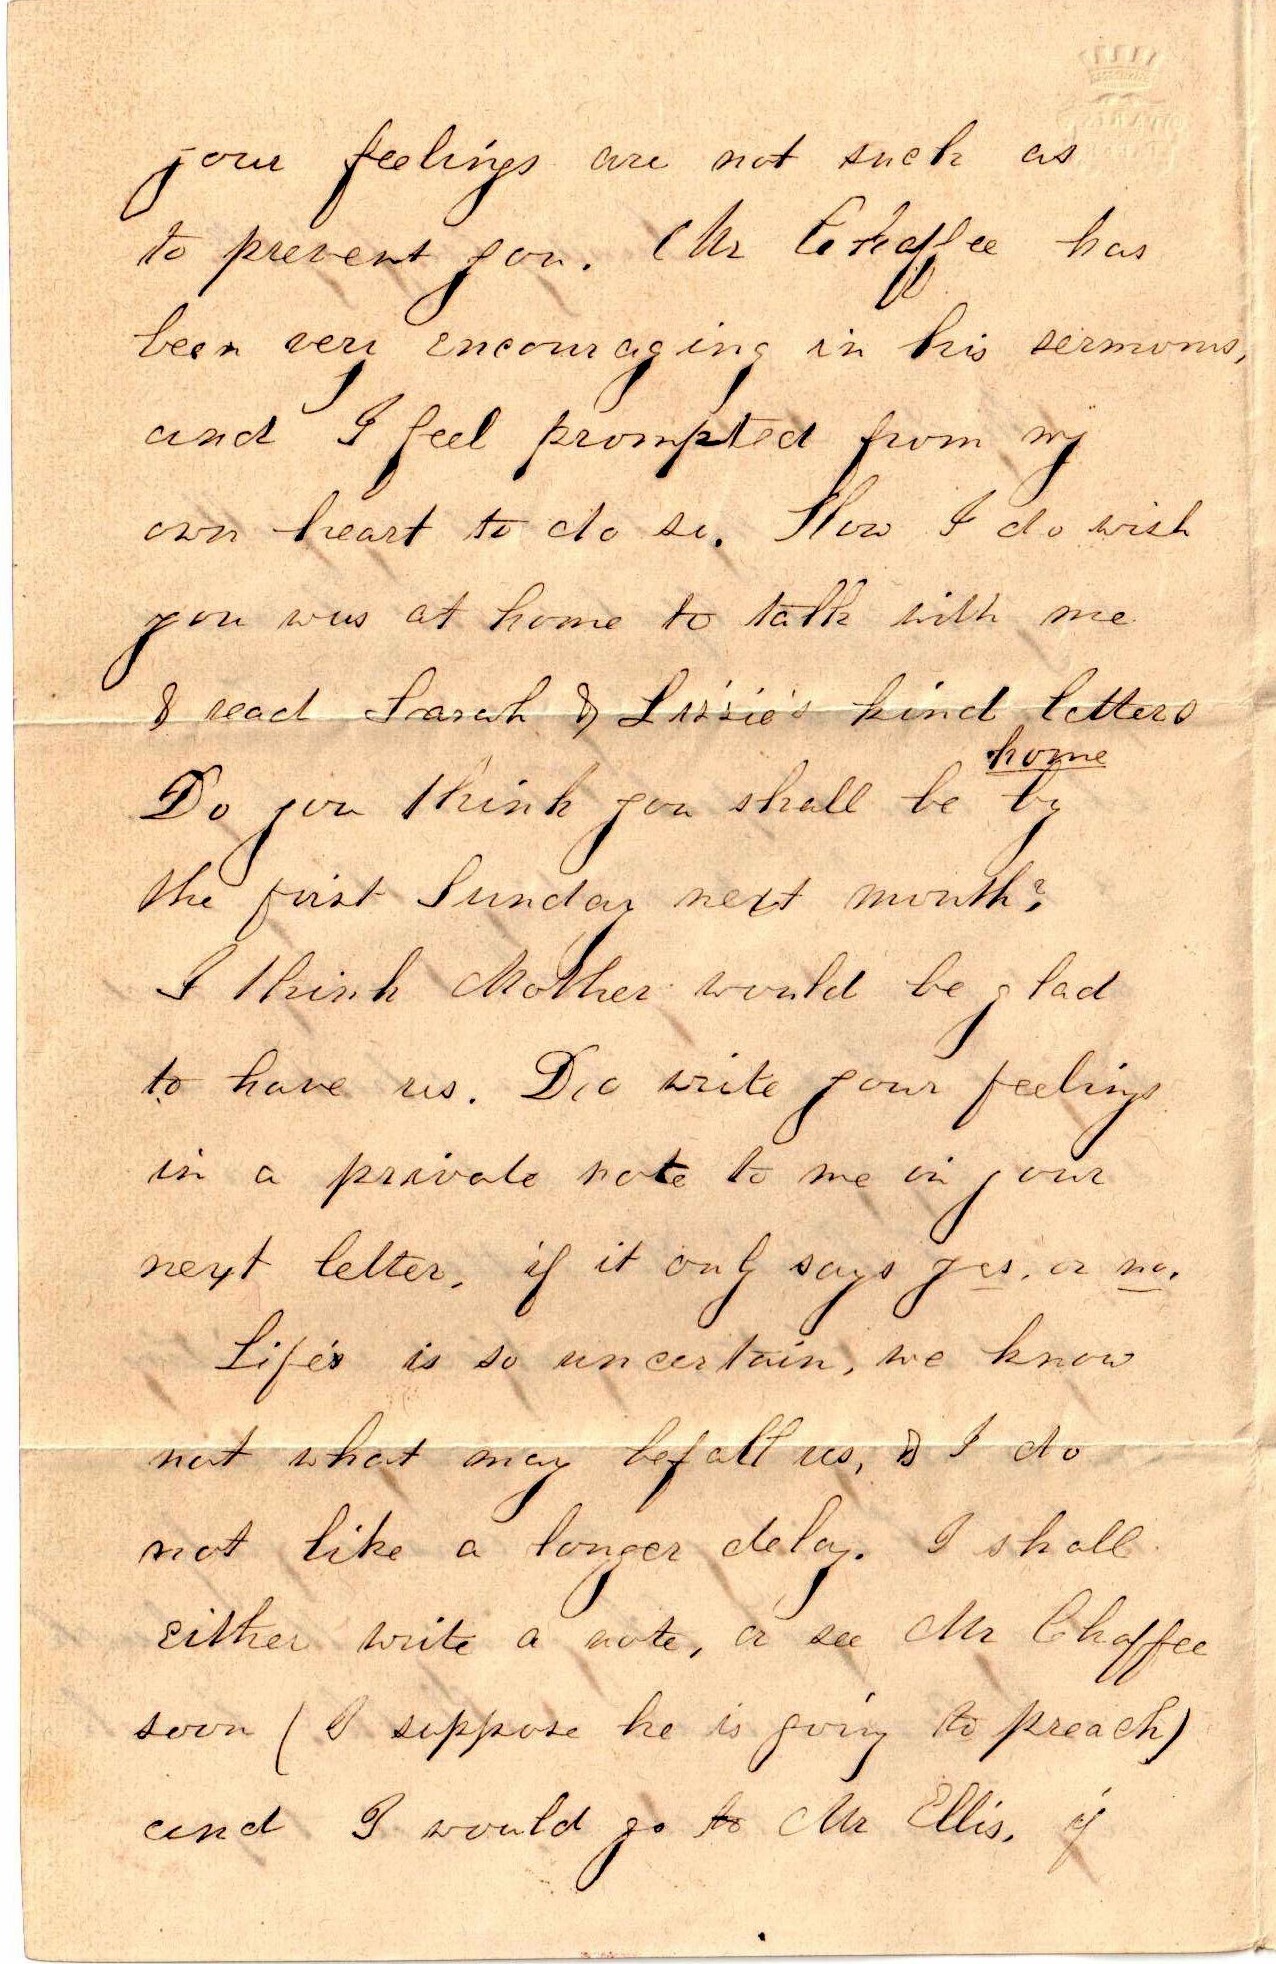 your feelings are not such as
to prevent you. Mr Chaffee has
been very encouraging in his sermons,
and I feel prompted from my
own heart to do so. How I do wish
you was at home to talk with me
& read Sarah & Lizzie's kind letters
home
Do you think you shall be by
the first Sunday next month?
I think Mother would be glad
to have us. Do write your feelings
in a private note to me in your
next letter, if it only says yes. or no.
Life's is so uncertain, we know
not what may befall us, & I do
not like a longer delay. I shall
either write a note, or see Mr Chaffee
soon (I suppose he is going to preach)
and I would go to Mr Ellis. if